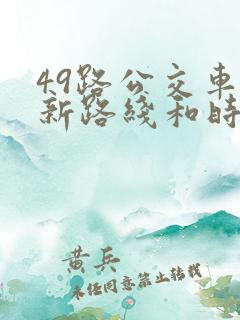 49路公交车
新路线和时
黄兵
未经同意禁止转载